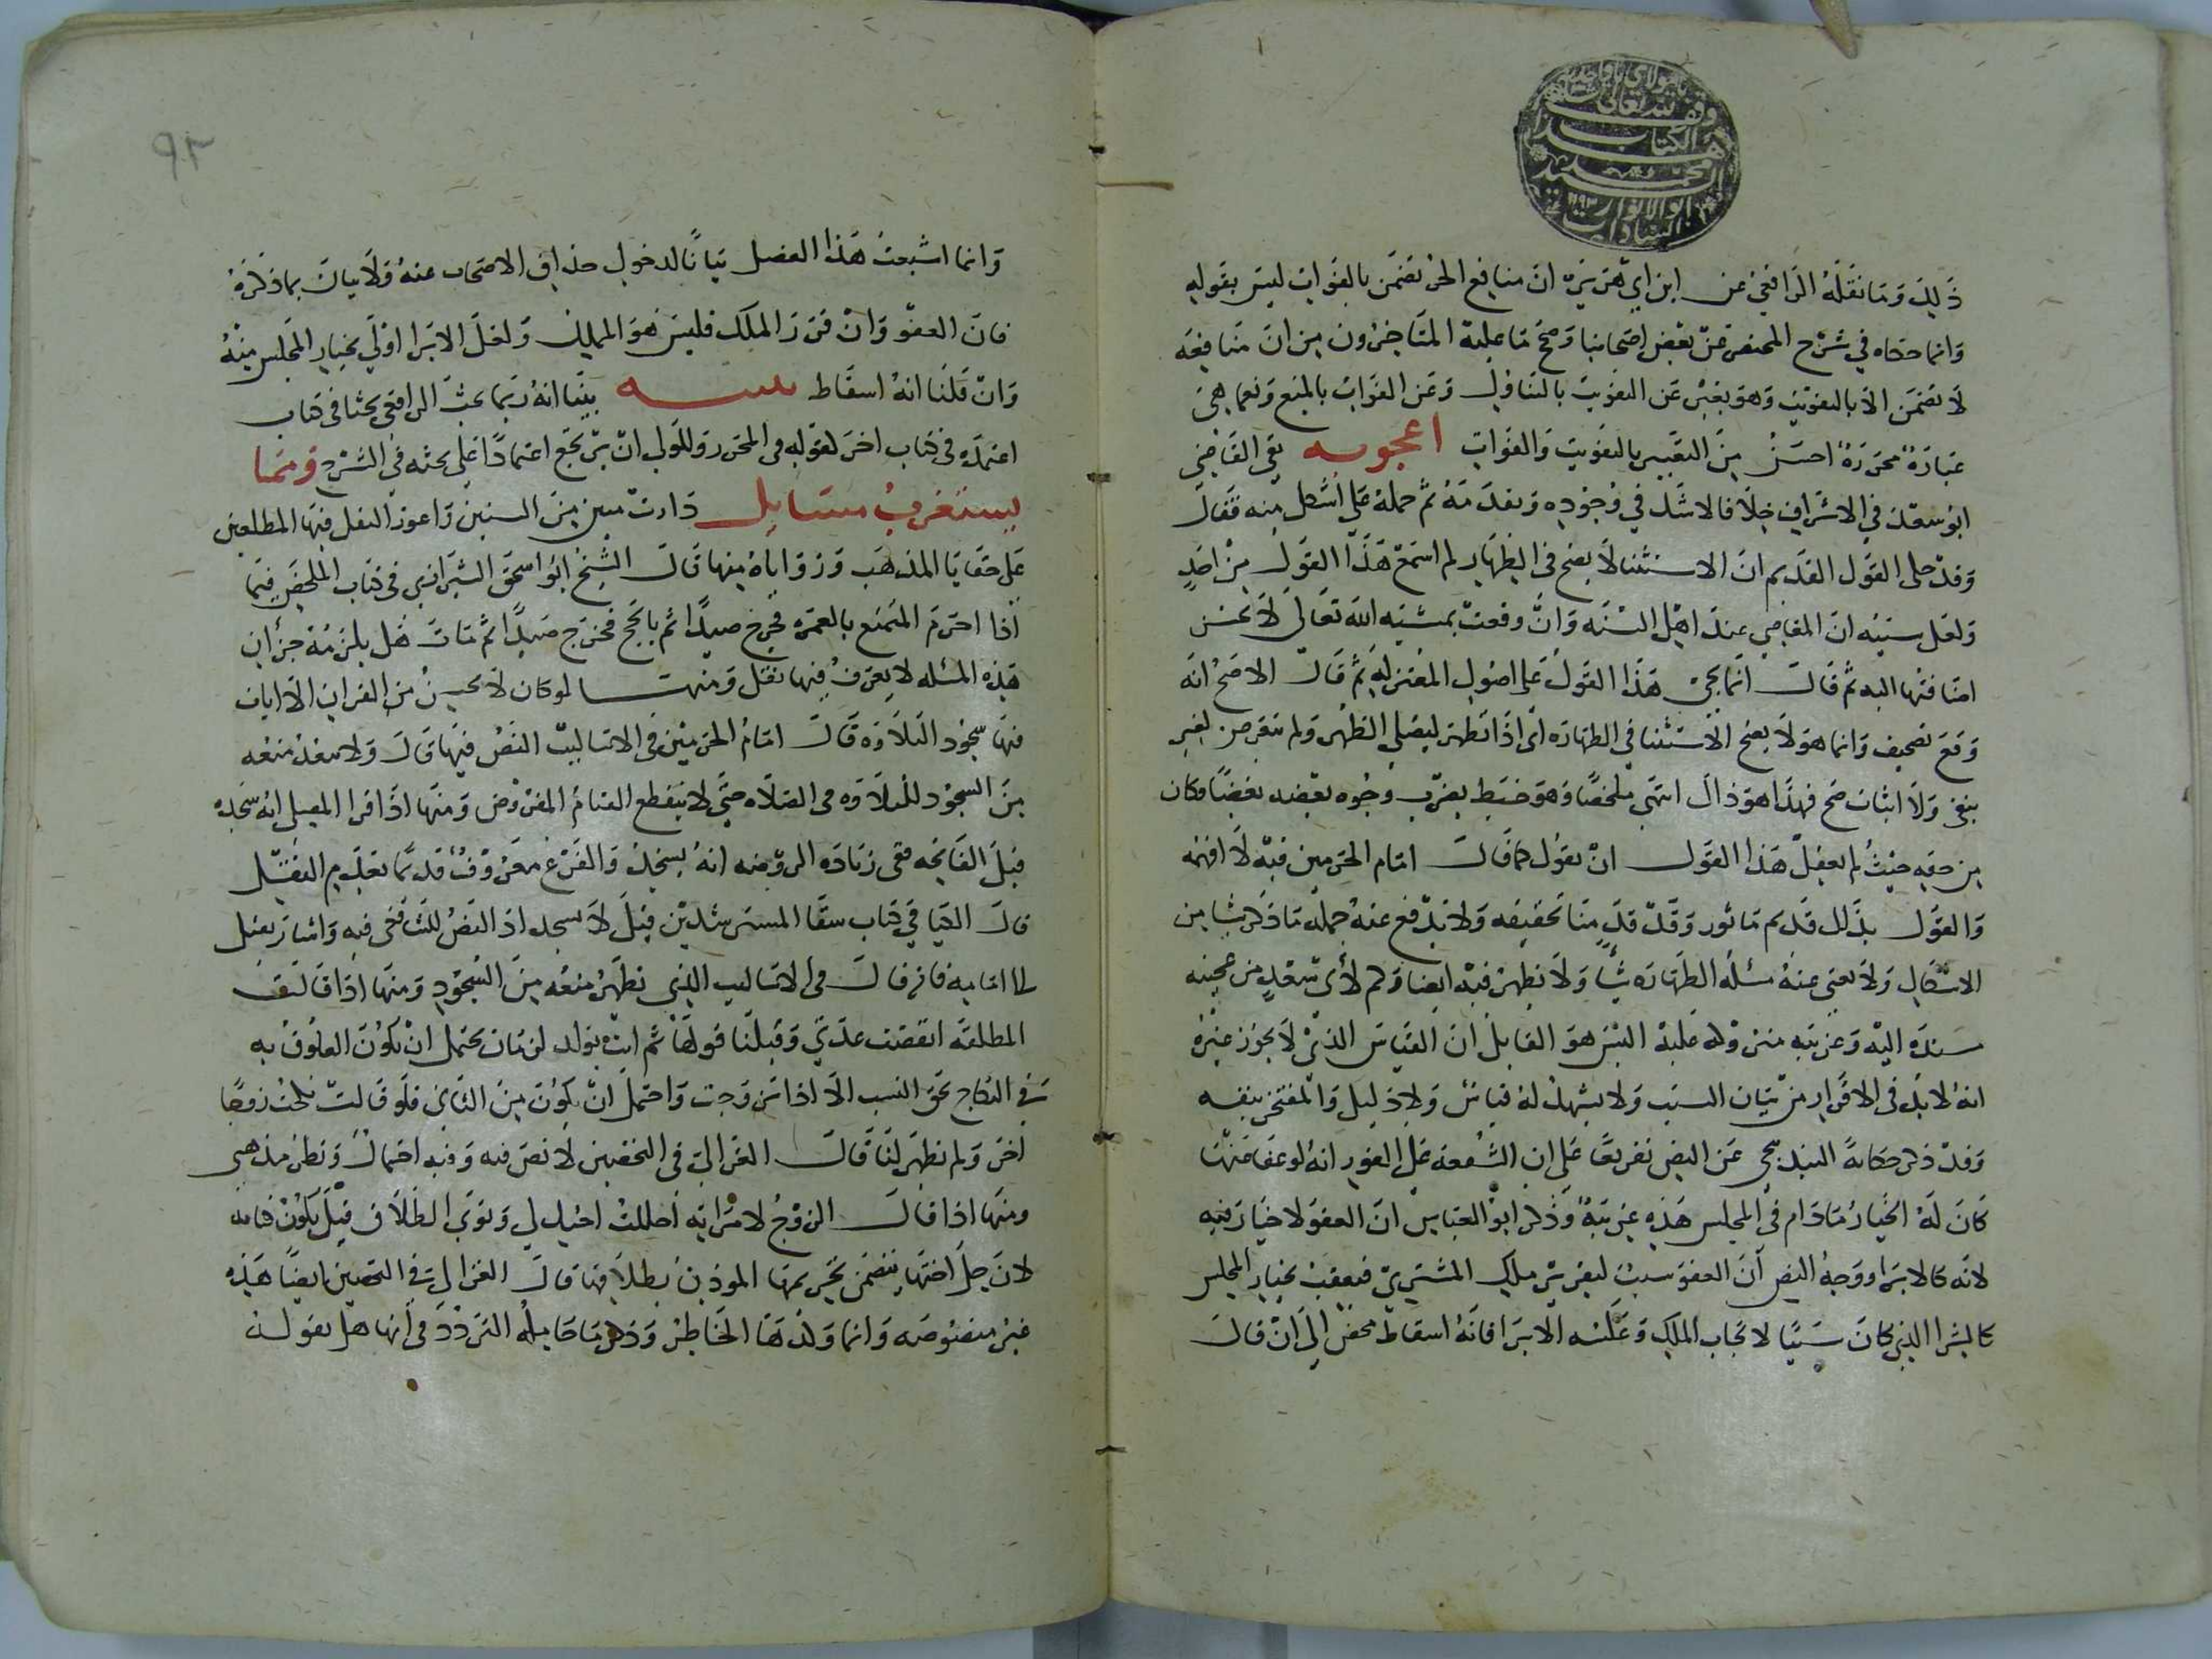 يا مولاي يا واحد
وقف لله تعالى
هذا الكتاب
السيد محمد
ابو الانوار ١١٩٣
السادات
ذلك وما نقله الرافعي عن ابن ابي هريرة ان منافع الحر تضمن بالفوات ليس بقوله
وانما حكاه في شرح المختصر عن بعض اصحابنا وصحح ما عليه المتاخرون من ان منافعه
لا تضمن الا بالتفويت وهو يعبر عن التفويت بالتناول وعن الفوات بالمنع ونعما هي
عبارة محررة احسن من التعبير بالتفويت والفوات اعجوبه بقي القاضي
ابو سعد في الاشراف خلافا لا شك في وجوده وبعد مه ثم حمله على اشكل منه فقال
وقد حكى القول القديم ان الاستثنا لا يصح في الظهار لم اسمع هذا القول من احد
ولعل سببه ان المعاصي عند اهل السنه وان وقعت بمشيه الله تعالى لا يحسن
اضافتها اليه ثم قال انما يجي هذا القول على اصول المعتزله ثم قال الاصح انه
وقع تصحيف وانما هو لا يصح الاستثنا في الطهاره اي اذا تطهر ليصلي الظهر ولم يتعرض لغير
بنفي ولا اثبات صح فهذا هو ذاك انتهى ملخصا وهو خبط يضرب وجوه بعضه بعضا وكان
من حقه حيث لم يعقل هذا القول ان يقول كما قال امام الحرمين فيه لا افهمه
والقول بذلك قديم ماثور وقد قدمنا تحقيقه ولا يدفع عنه جمله ما ذكر شيا من
الاشكال ولا يغني عنه مسله الطهاره شيا ولا يظهر فيه ايضا ولم لابي سعد من عجيبه
سنده اليه وغريبه مترده عليه اليس هو القايل ان القياس الذي لا يجوز غيره
انه لابد في الاقرار من بيان السبب ولا يشهد له قياس ولا دليل والمفتخر بنفسه
وقد ذكر حكاية البندنيجي عن النص تفريعا على ان الشفعه على الفور انه لو عفا عنها
كان له الخيار مادام في المجلس هذه غريبة وذكر ابو العباس ان العفو لا خيار فيه
لانه كالابرا ووجه النص ان العفو سبب لتقرير ملك المشتري فيعقب بخيار المجلس
كالشرا الذي كان سببا لايجاب الملك وعكسه الابرا فانه اسقاط محض الى ان قال
٩٣
وانما اشبعت هذا الفصل بيانا لدخول حذاق الاصحاب عنه ولا بيان بما ذكره
فان العفو وان قرر الملك فليس هو المملك ولعل الابرا اولى بخيار المجلس منه
وان قلنا انه اسقاط تنبيه بينا انه ربما بحث الرافعي بحثا في كتاب
اعتمده في كتاب اخر كقوله في المحرر وللولي ان يرجع اعتمادا على بحثه في الشرح ومما
يستغرب مسايل دارت مبين من السنين واعوز النقل فيها المطلعين
على خفايا المذهب وزواياه منها قال الشيخ ابو اسحق الشيرازي في كتاب الملخص فيما
اذا احرم المتمتع بالعمره فجرح صيدا ثم بالحج فجرح صيدا ثم مات هل يلزمه جزان
هذه المسله لا يعرف فيها نقل ومنها لو كان لا يحسن من القران الا ايات
فيها سجود التلاوه قال امام الحرمين في الاساليب النص فيها قال ولا يبعد منعه
من السجود للتلاوه في الصلاه حتى لا ينقطع القيام المفروض ومنها اذا قرا المصلي ايه سجده
قبل الفاتحه ففي زياده الروضه انه يسجد والفرع معروف قديما بعديم النقل
قال الكيا في كتاب شفا المسترشدين قيل لا يسجد اذ النص للتشافعي فيه واشار بقيل
الى امامه فانه قال في الاساليب الذي يظهر منعه من السجود ومنها اذا قالت
المطلقه انقضت عدتي وقبلنا قولها ثم اتت بولد لزمان يحتمل ان يكون العلوق به
في النكاح لحق النسب الا اذا تزوجت واحتمل ان يكون من الثاني فلو قالت نكحت زوجا
اخر ولم يظهر لنا قال الغزالي في التحصين لا نص فيه وفيه احتمال ونظر مذهبي
ومنها اذا قال الزوج لامراته احللت اختك لي ونوى الطلاق قيل يكون كنايه
لان حل اختها يتضمن تحريمها الموذن بطلاقها قال الغزالي في التحصين ايضا هذه
غير منصوصه وانما ولدها الخاطر وذكر ما حاصله التردد في انها هل يقول